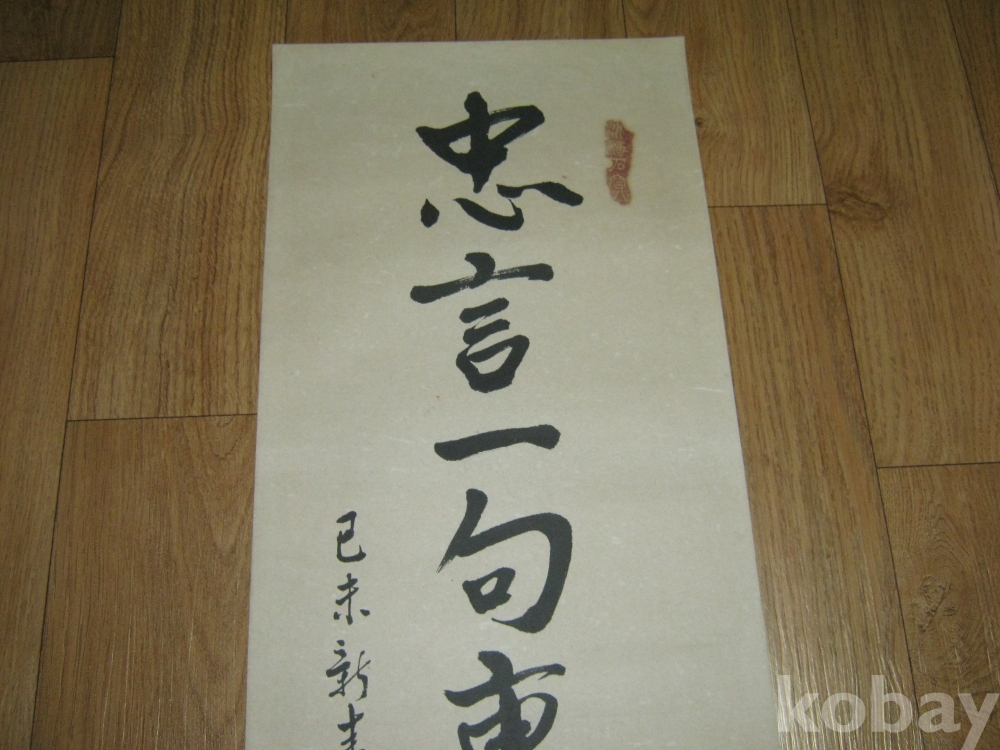 忠言一句
己未新春
kobay